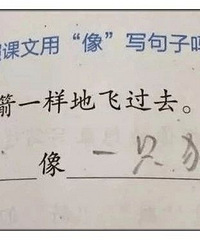 课文用“像”写句子吗
箭一样地飞过去。
像一只